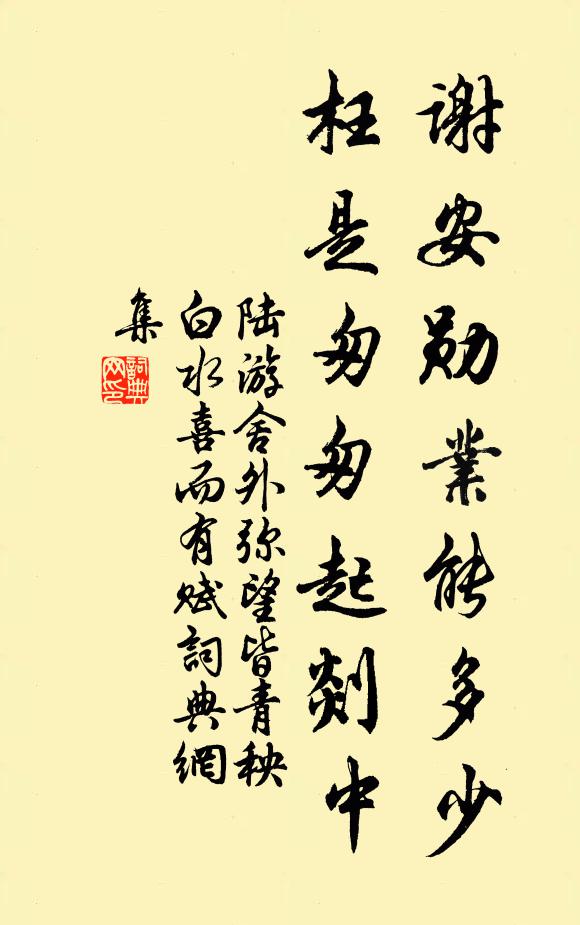 谢安勋業能多少
枉是匆匆起剡中
陆游舍外弥望皆青秧
白水喜而有赋詞典網
集
詞典
网印